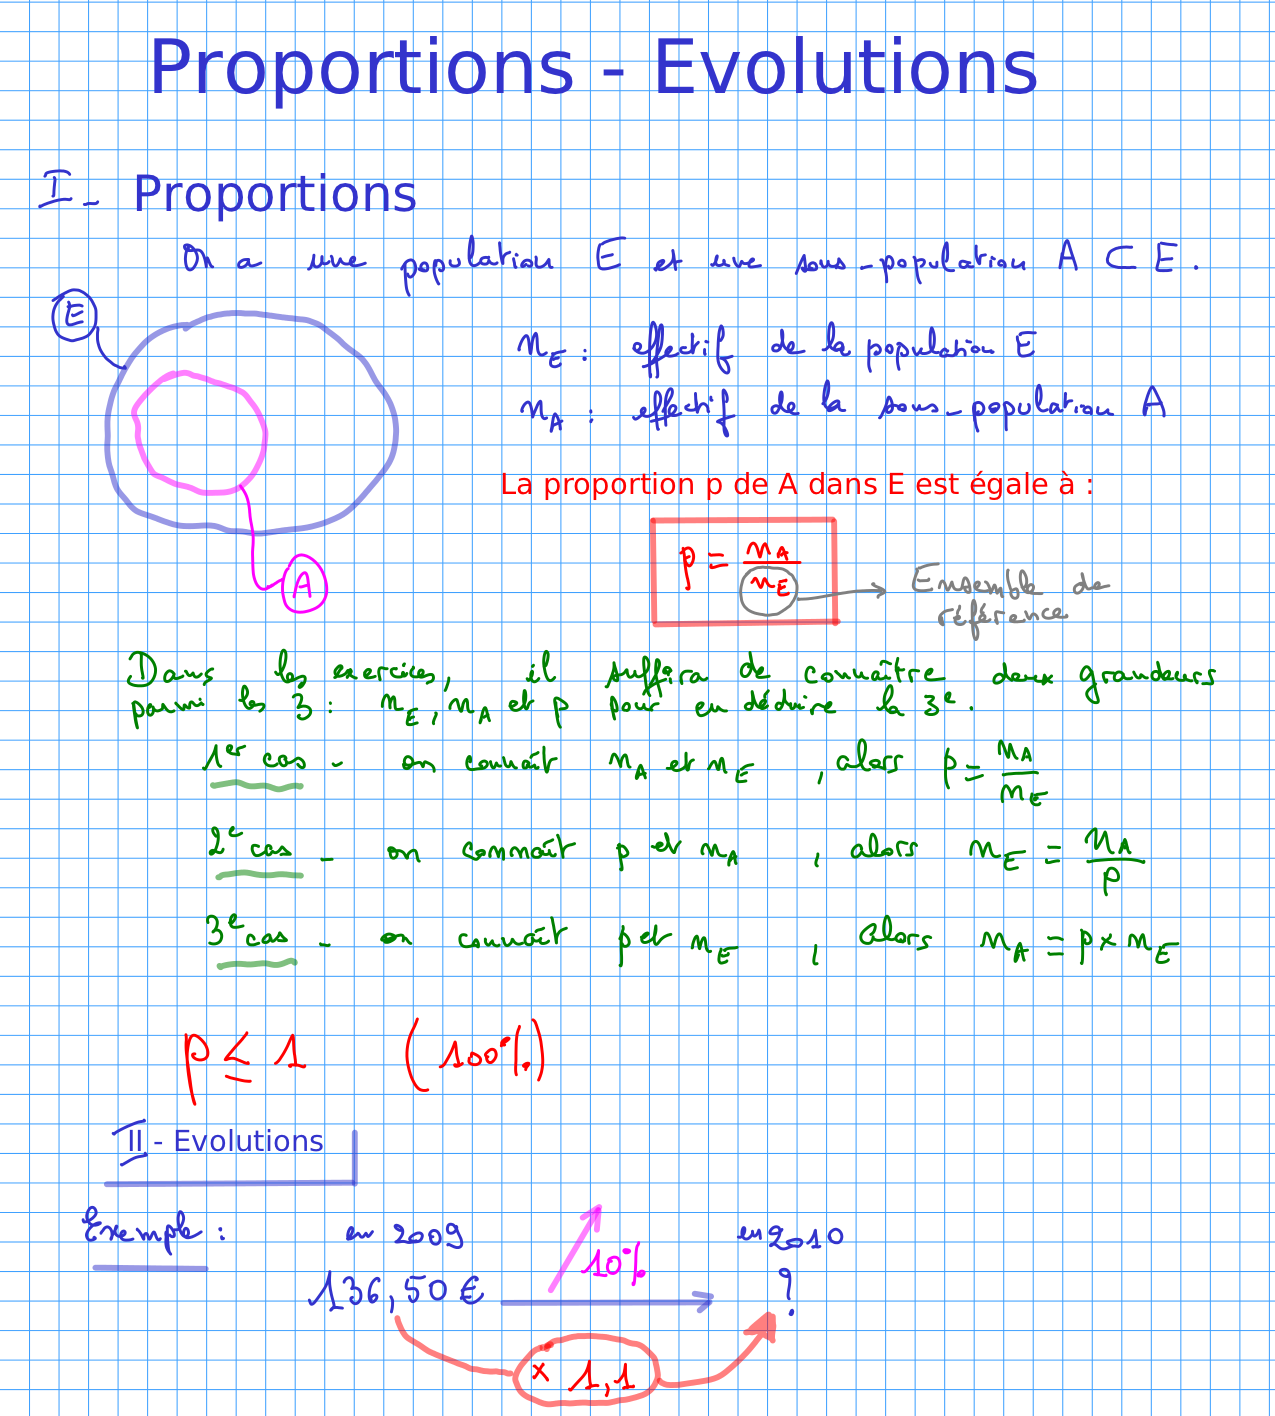 Proportions - Evolutions
I - Proportions
On a une population E et une sous-population A ⊂ E.
E
n_E : effectif de la population E
n_A : effectif de la sous-population A
La proportion p de A dans E est égale à :
p = n_A / n_E
Ensemble de
référence
A
Dans les exercices, il suffira de connaître deux grandeurs
parmi les 3 : n_E, n_A et p pour en déduire la 3e.
1er cas - on connaît n_A et n_E , alors p = n_A / n_E
2e cas - on connaît p et n_A , alors n_E = n_A / p
3e cas - on connaît p et n_E , alors n_A = p × n_E
p ≤ 1 (100%)
II - Evolutions
Exemple : en 2009 en 2010
136,50 € 10% ?
× 1,1